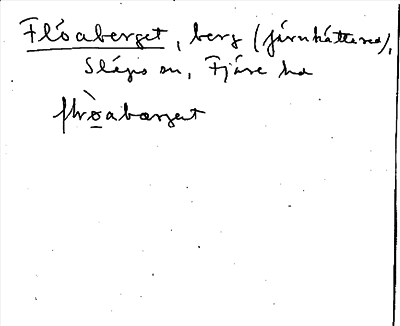 Flóaberget, berg (järnhätta red),
Släps sn, Fjäre hd
flròabærget